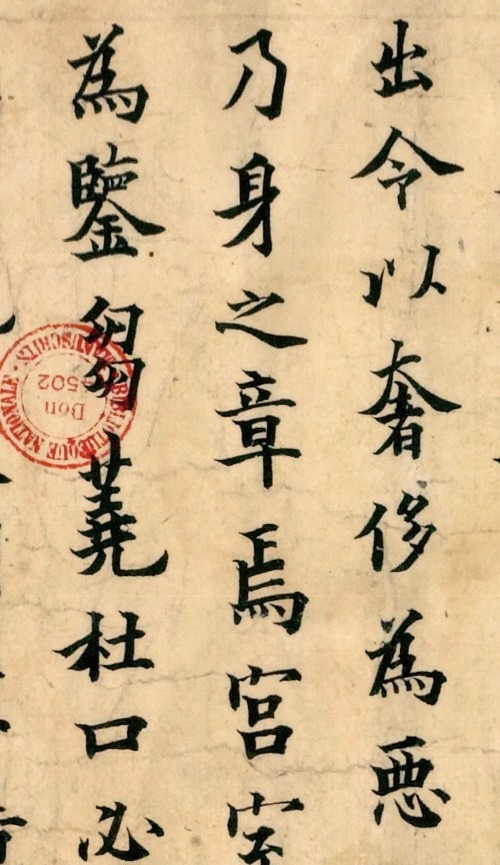 出令以奢侈為惡
乃身之章焉宮室
為鑒芻蕘杜口必
BIBLIOTHEQUE NATIONALE
MANUSCRITS
Don
502